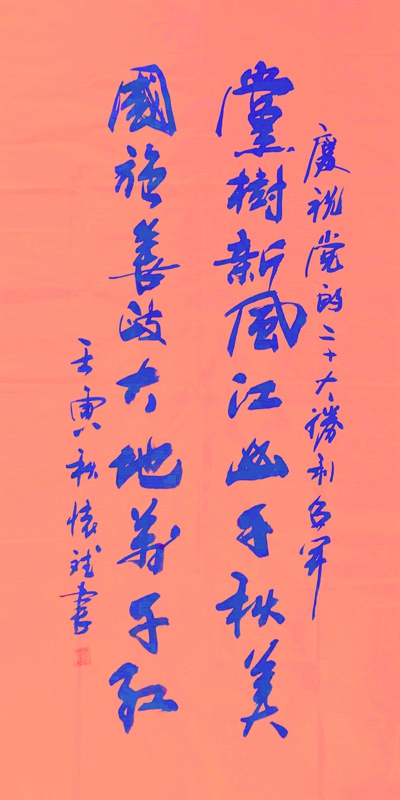 慶祝党的二十大勝利召開
黨樹新風江山千秋美
國施善政大地萬年紅
壬寅秋懷斌書